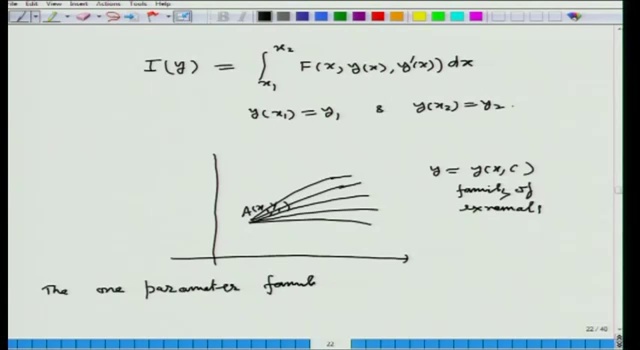 File Edit View Insert Actions Tools Help
I(y) = ∫_{x₁}^{x₂} F(x, y(x), y'(x)) dx
y(x₁) = y₁ & y(x₂) = y₂.
y = y(x, c)
family of
exremals
A(x₁, y₁)
The one parameter famil
22 / 40
22